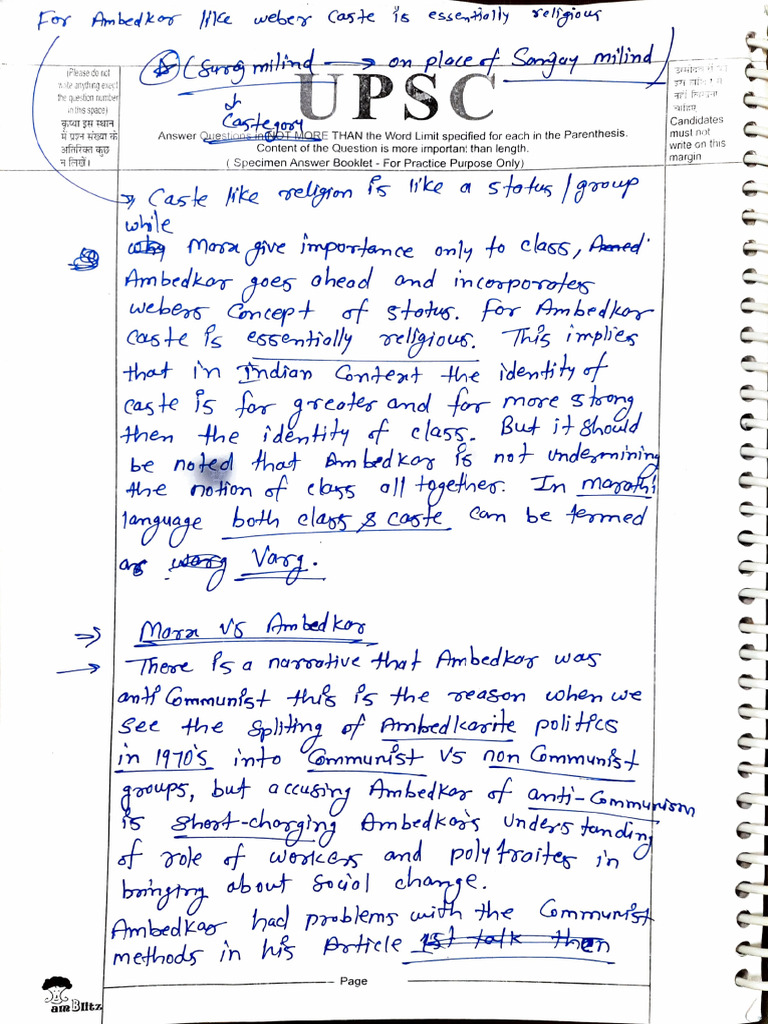 For Ambedkar like weber caste is essentially religious
(Suraj milind → on place of Sanjay milind)
Castegory
(Please do not write anything except the question number in this space)
कृपया इस स्थान में प्रश्न संख्या के अतिरिक्त कुछ न लिखें।
UPSC
Answer Questions in NOT MORE THAN the Word Limit specified for each in the Parenthesis.
Content of the Question is more important than length.
( Specimen Answer Booklet - For Practice Purpose Only)
Candidates must not write on this margin
→ Caste like religion is like a status/group
while
Marx give importance only to class,
Ambedkar goes ahead and incorporates
webers concept of status. For Ambedkar
caste is essentially religious. This implies
that in Indian Context the identity of
caste is far greater and far more strong
then the identity of class. But it should
be noted that Ambedkar is not undermining
the notion of class all together. In marathi
language both class & caste can be termed
as warg Varg.
⇒ Marx vs Ambedkar
→ There is a narrative that Ambedkar was
anti Communist this is the reason when we
see the spliting of Ambedkarite politics
in 1970's into Communist vs non Communist
groups, but accusing Ambedkar of anti-Communism
is short-charging Ambedkar's understanding
of role of workers and polytraites in
bringing about social change.
Ambedkar had problems with the Communist
methods in his Article 1st talk then
Page
am Blitz